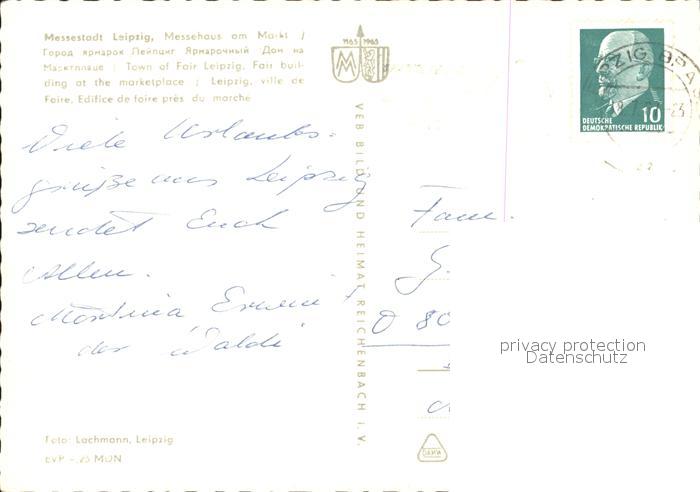 Messestadt Leipzig, Messehaus am Markt /
Город ярмарок Лейпциг Ярмарочный Дом на
Марктплаце / Town of Fair Leipzig, Fair buil-
ding at the marketplace / Leipzig, ville de
Foire, Edifice de foire près du marché
1165 1965
M
DEUTSCHE
DEMOKRATISCHE REPUBLIK
10
Viele Urlaubs-
grüße aus Leipzig
sendet Euch
Allen.
Martina Erwin
der Waldi
VEB BILD UND HEIMAT REICHENBACH i. V.
Fam.
G.
privacy protection
Datenschutz
Foto: Lachmann, Leipzig
EVP -,25 MDN